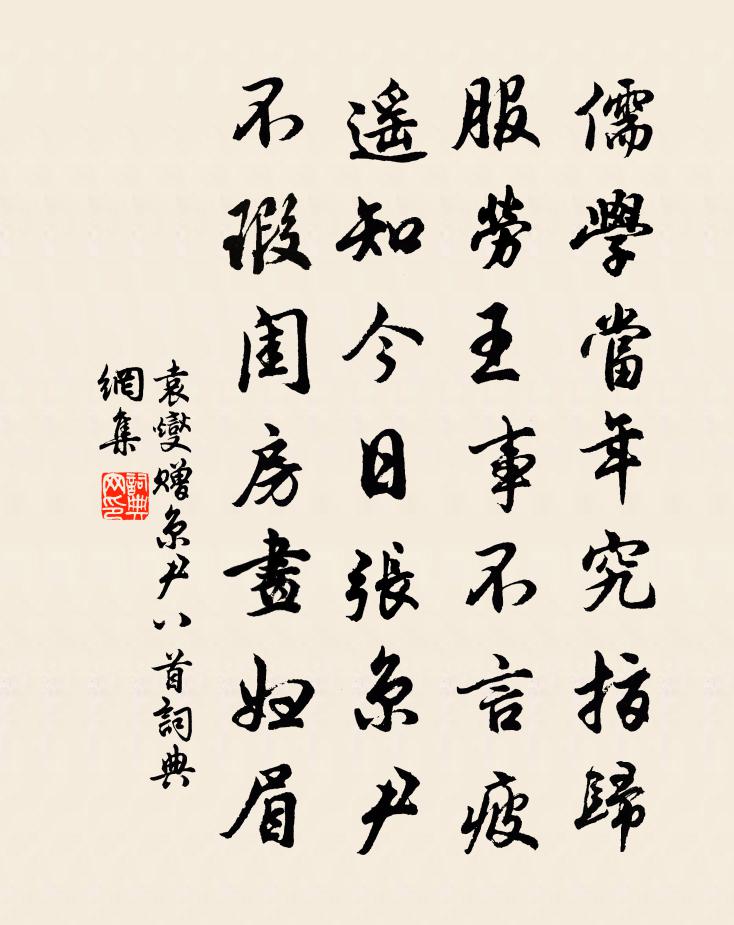 儒學當年究指歸
服勞王事不言疲
遥知今日張京尹
不瑕閨房畫嫵眉
袁燮贈京尹八首詞典
網集
詞典网印